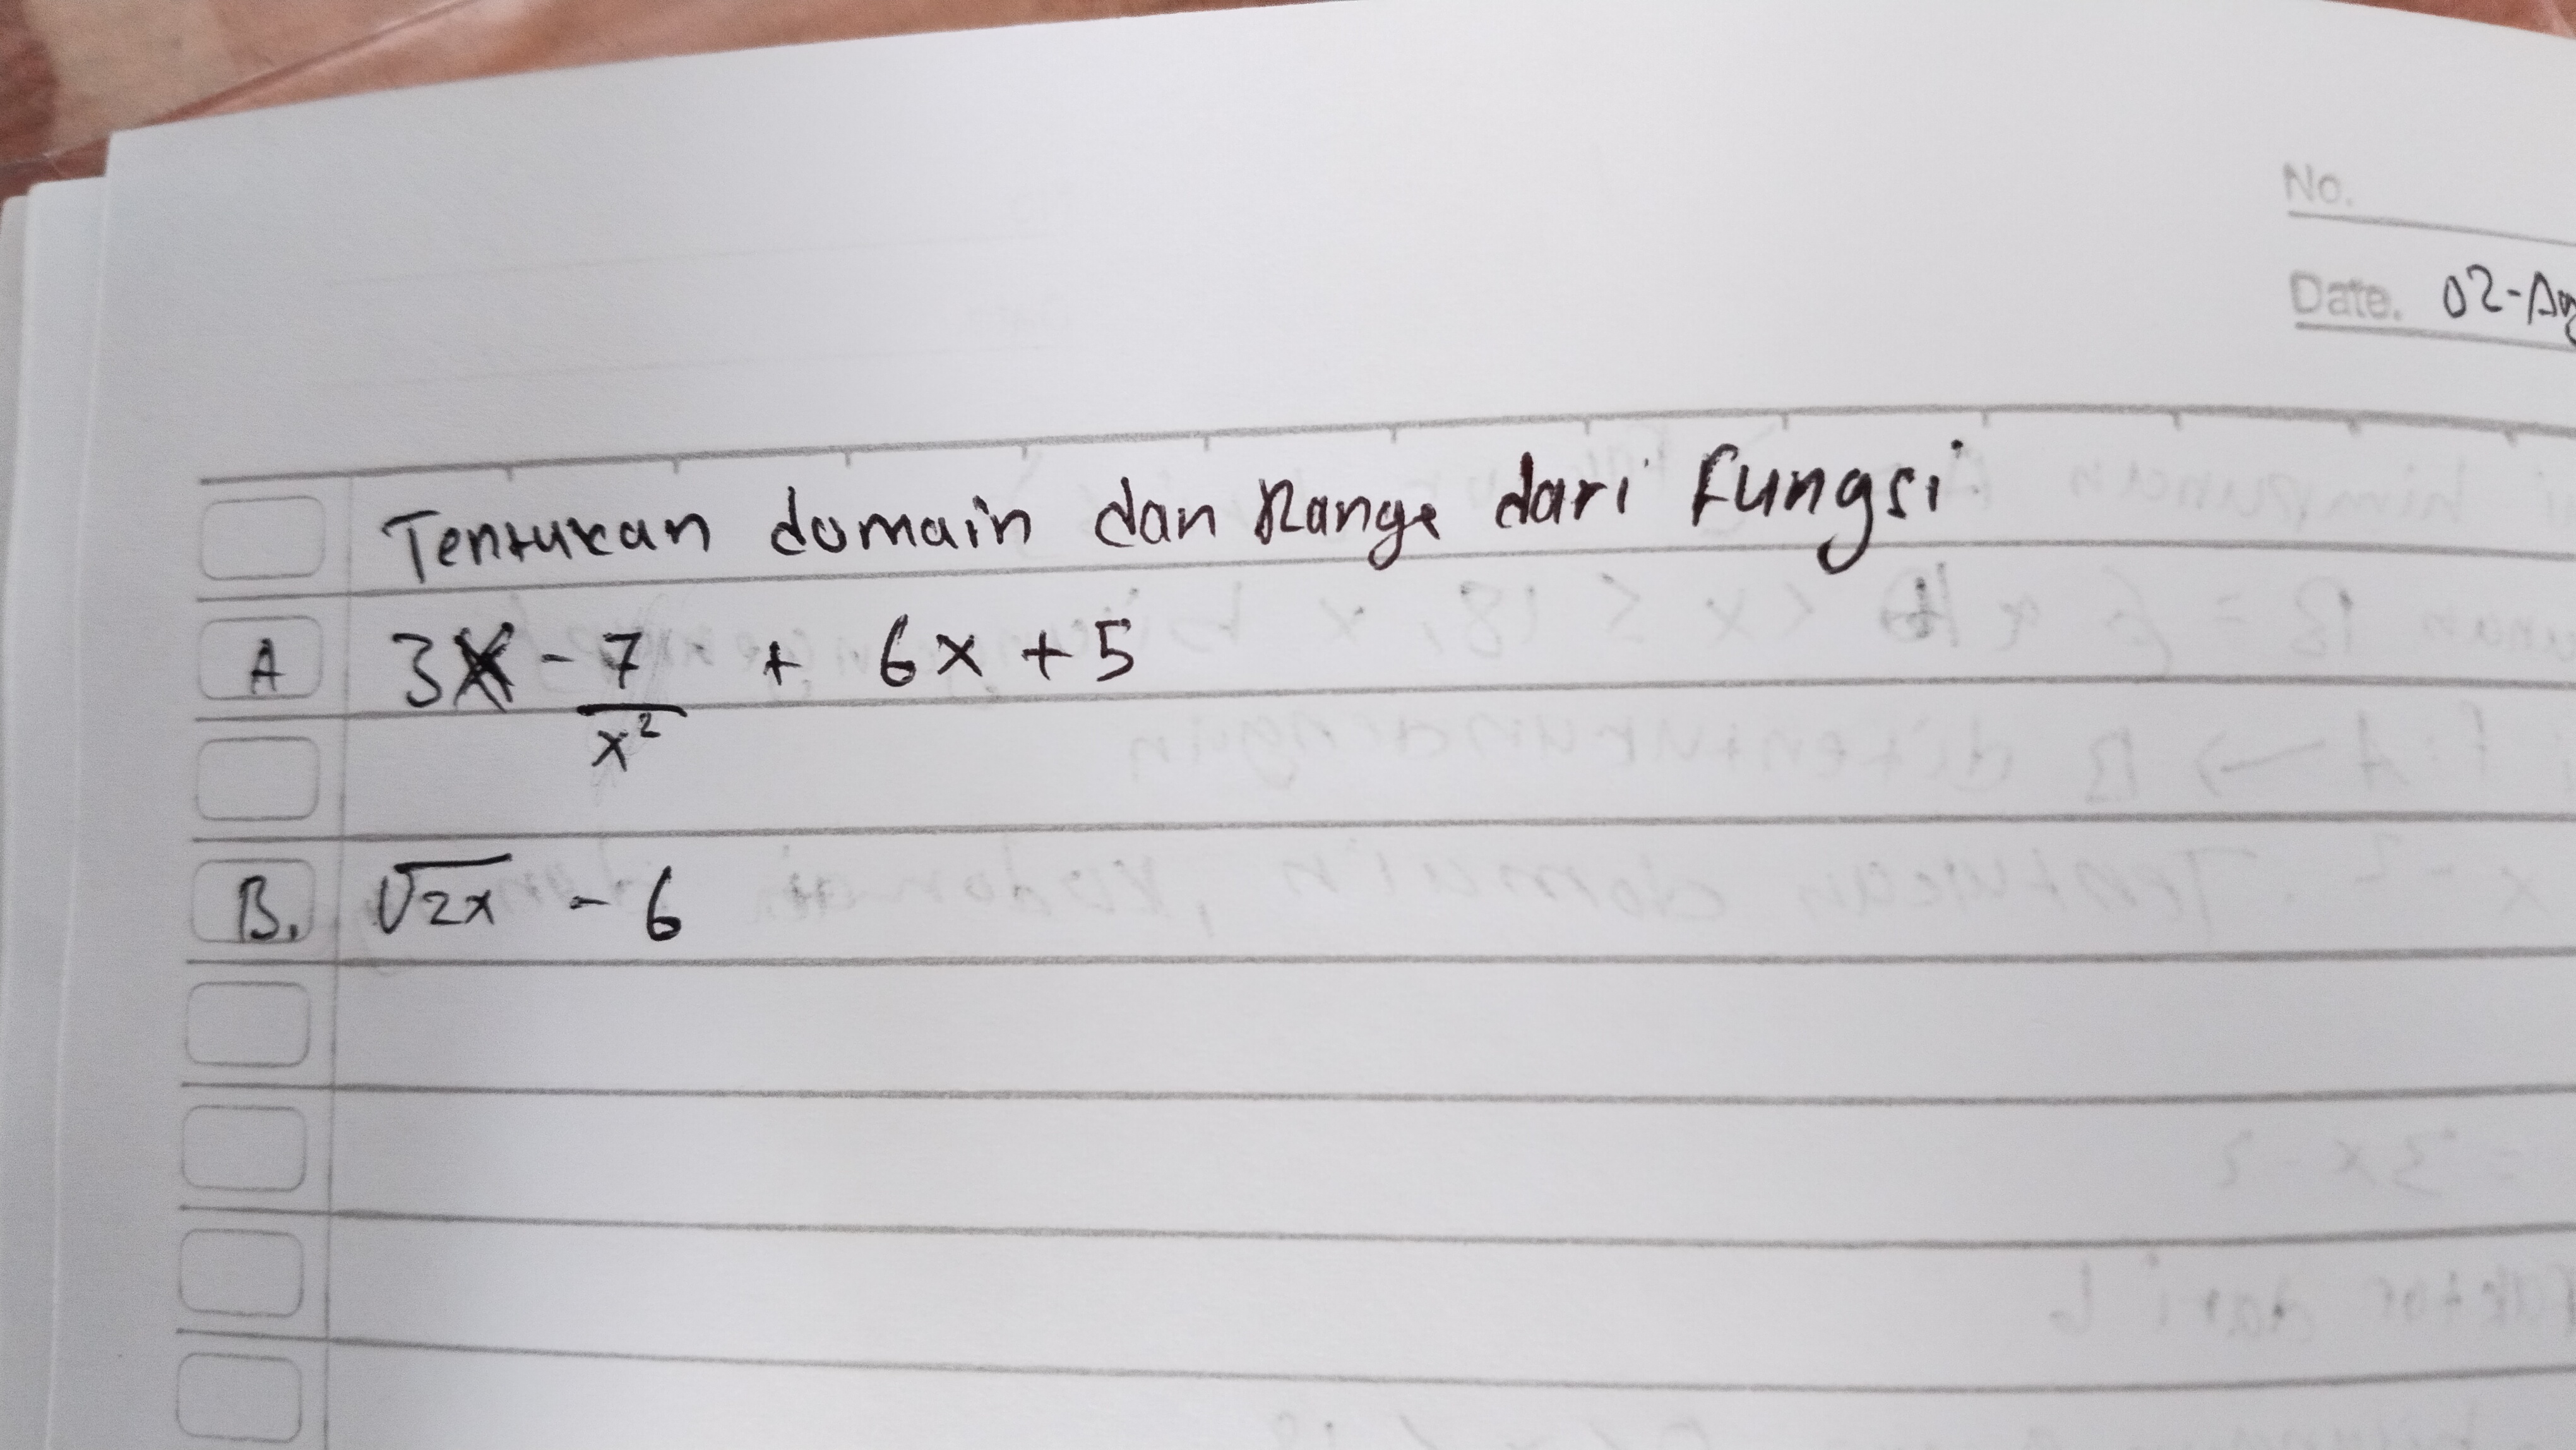 No.
Date. 02-Ag
Tentukan domain dan Range dari Fungsi
A 3x - 7/x² + 6x + 5
B. √2x - 6